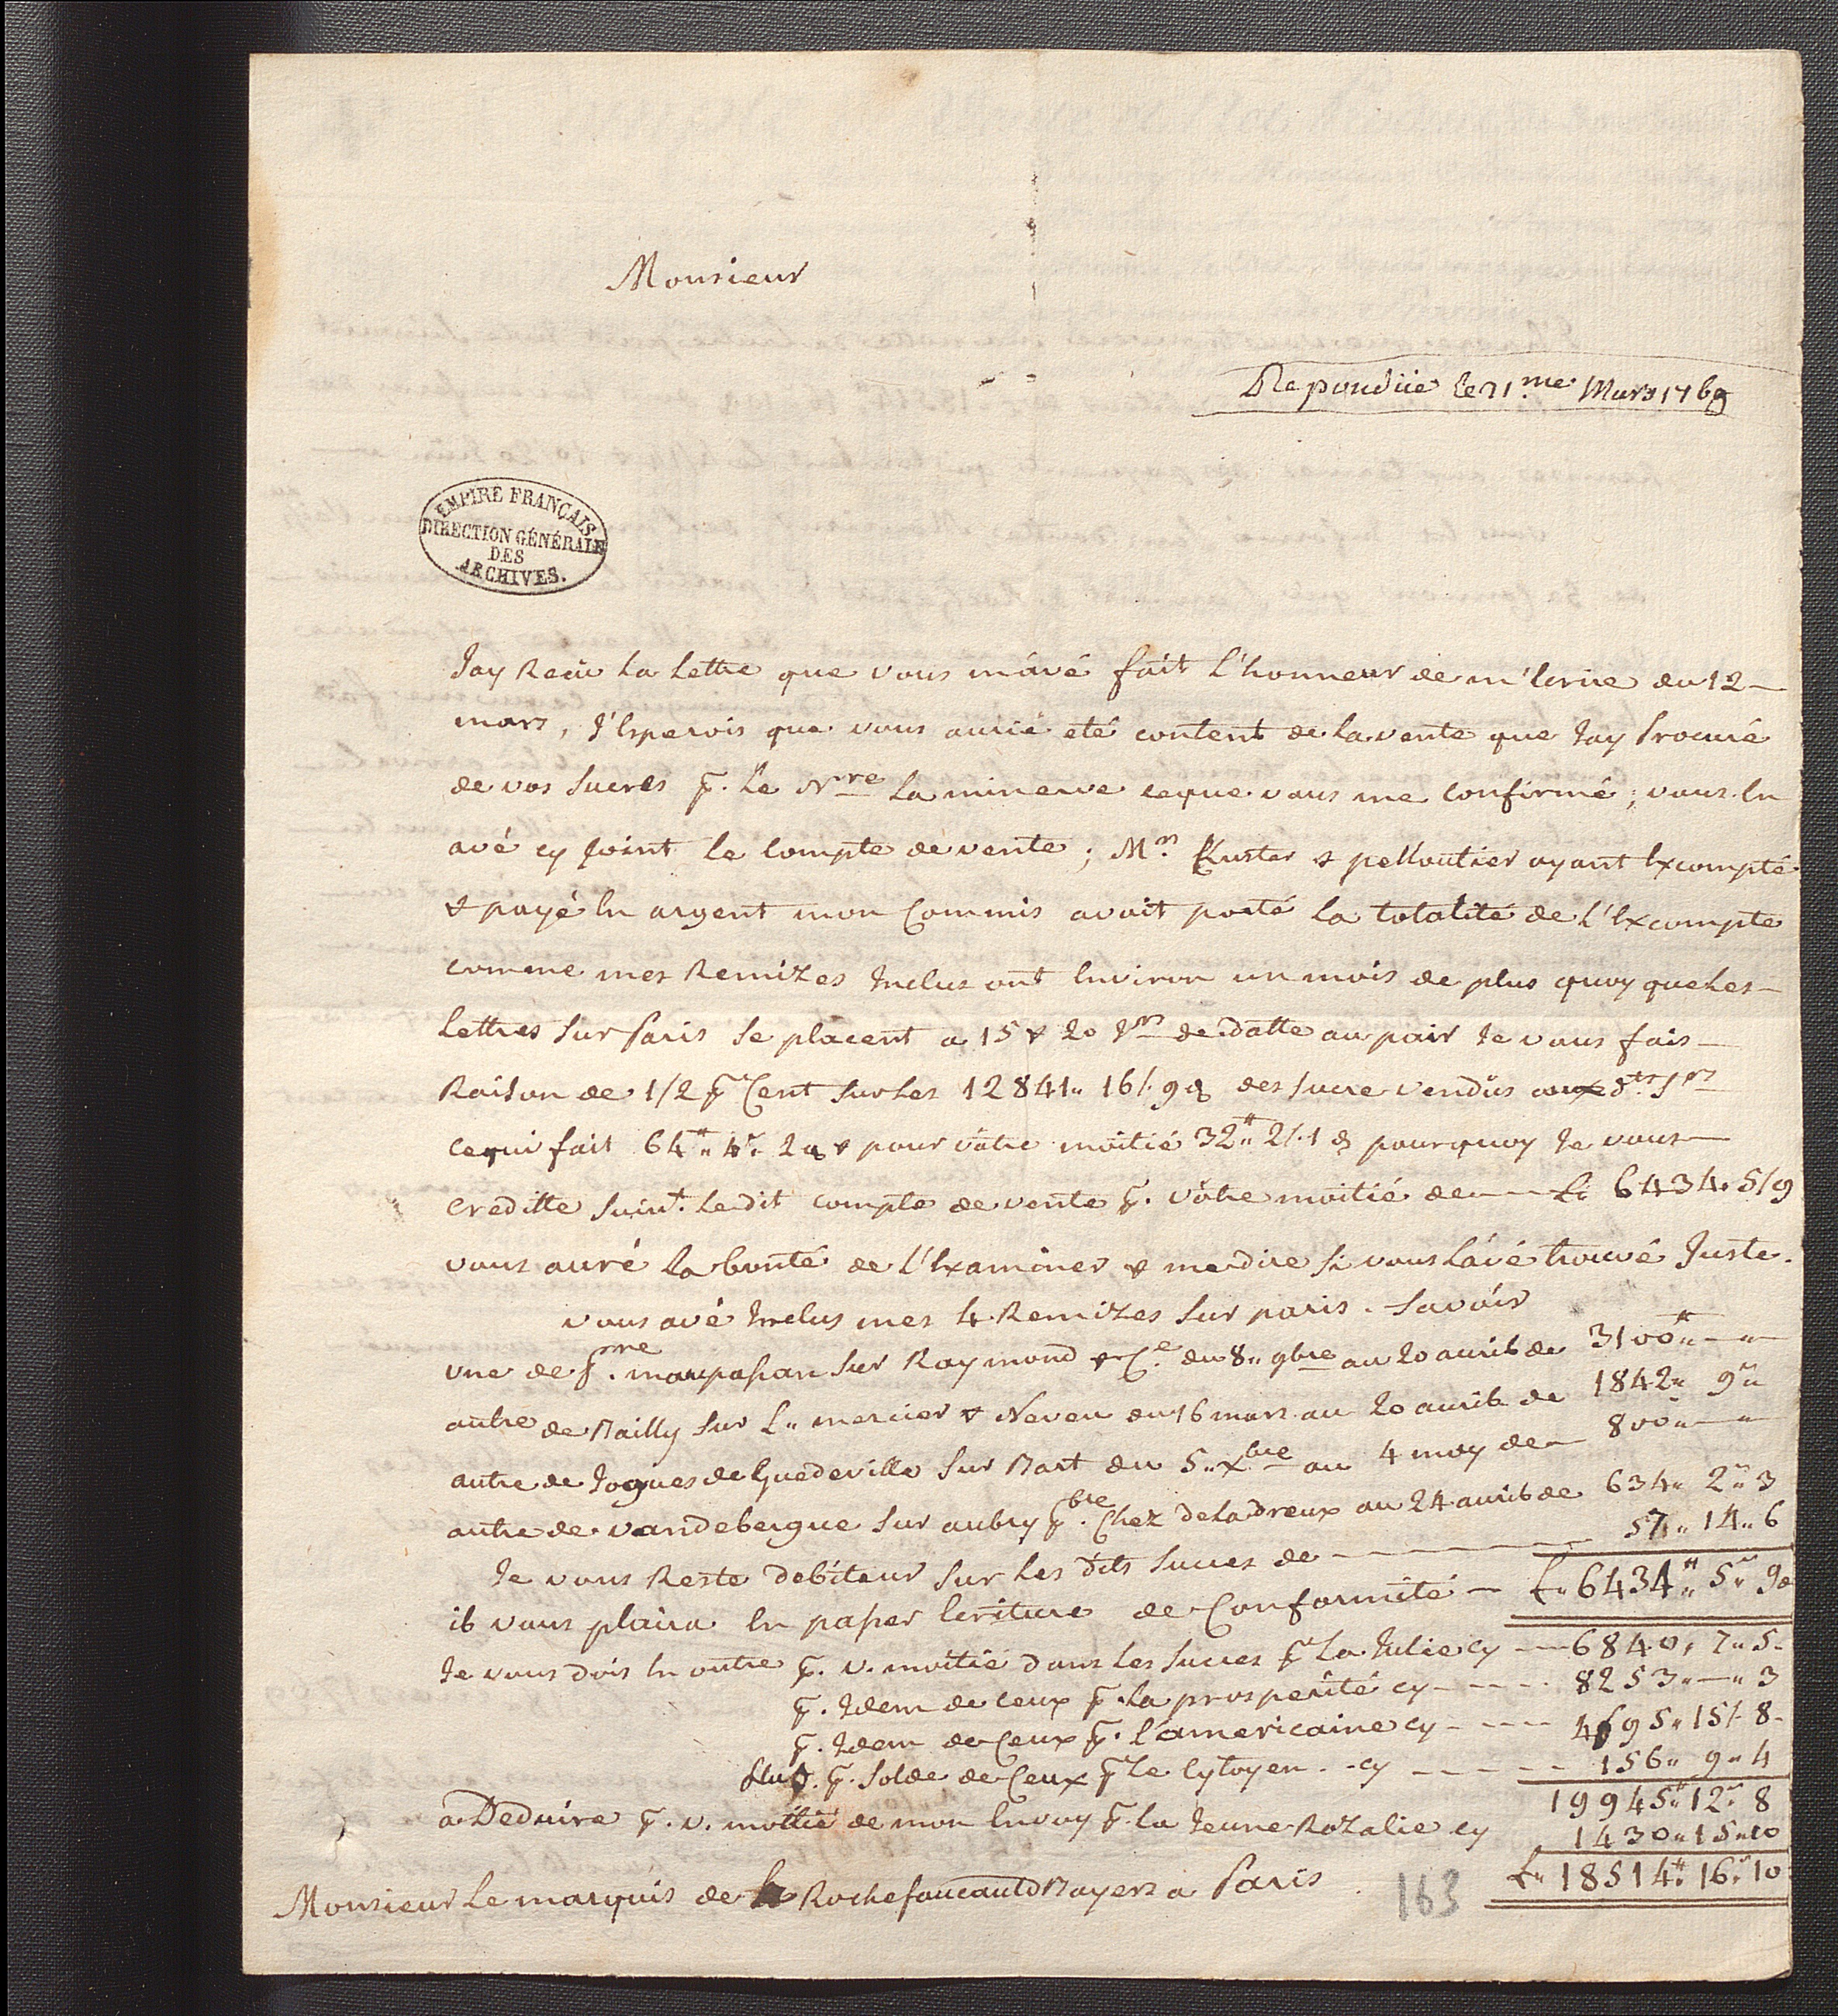 Monsieur
Repondüe le 21.me Mars 1769
EMPIRE FRANÇAIS
DIRECTION GÉNÉRALE
DES
ARCHIVES.
Jay Recu La Lettre que vous m'avé fait l'honneur de m'Ecrire du 12
mars, J'Esperois que vous aurié eté content de la vente que Jay Procuré
de vos Sucres p. Le N.re La minerve ce que vous me Confirmé; vous En
avé cy Joint le Compte de vente; M.rs Kuster & pelloutier ayant Excompté
& payé En argent mon Commis avoit porté la totalité de L'Excompte
comme mes Remizes Inclus ont Environ un mois de plus quoy que Les
Lettres Sur Paris Se placent a 15 & 20 Jrs de datte au pair Je vous fais
Raison de 1/2 p Cent Sur Les 12841" 16/. 9d des Sucre vendüs aux dts Srs
ce qui fait 64# 4s 2d & pour vôtre moitié 32# 2/. 1d pourquoy Je vous
creditte Suivt. Le dit compte de vente p. vôtre moitié de L. 6434. 5/9
vous auré La bonté de L'Examiner & me dire Si vous L'avé trouvé Juste.
vous avé Inclus mes 4 Remizes Sur paris. Savoir
une de maupassan Sur Raymond & Ce. du 8" 9bre au 20 avril de 3100#"—"
autre de Bailly Sur L" mercier & Neveu du 16 mars au 20 avril de 1842" 9"
autre de Jogues de Guedeville Sur Bart du 5" Xbre au 4 may de 800"—"
autre de vandebergue Sur aubry Chez de Ladreux au 24 avril de 634" 2" 3
Je vous Reste debiteur Sur Les dits Sucres de 57" 14" 6
il vous plaira En passer Ecriture de Conformité L" 6434# 5" 9d
Je vous dois En outre p. v. moitié dans Les Sucres p La Julie cy 6840, 7" 5
p. Idem de ceux p. La prosperité cy 8253"—" 3
p. Idem de Ceux p. L'americaine cy 4695" 15/. 8
Plus p. Solde de Ceux p Le Cytoyen cy 156" 9" 4
19945# 12s 8
a Deduire p. v. moitié de mon Envoy p. La Jeune Rozalie cy 1430" 15" 10
L" 18514# 16s 10
Monsieur Le marquis de la Rochefoucauld Bayers a Paris
163